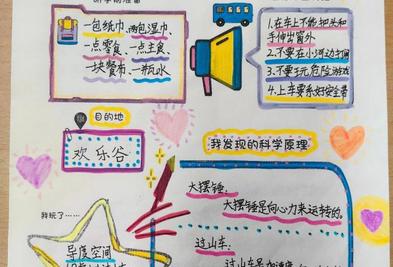 一包纸巾、两包湿巾、
一点零食、一点主食、
一块餐布、一瓶水
1.在车上不能把头和
手伸出窗外
2.不要在小河边打闹
3.不要玩危险游戏
4.上车要系好安全带
目的地
欢乐谷
我发现的科学原理
大摆锤:
大摆锤是向心力来运转的。
过山车:
我玩了……